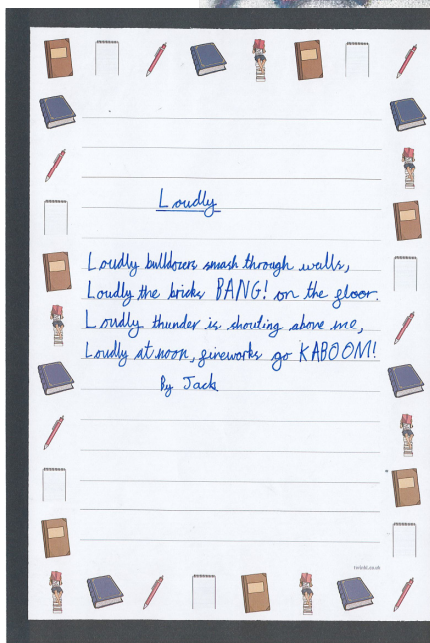 Loudly
Loudly bulldozers smash through walls,
Loudly the bricks BANG! on the floor.
Loudly thunder is shouting above me,
Loudly at noon, fireworks go KABOOM!
By Jack
twinkl.co.uk